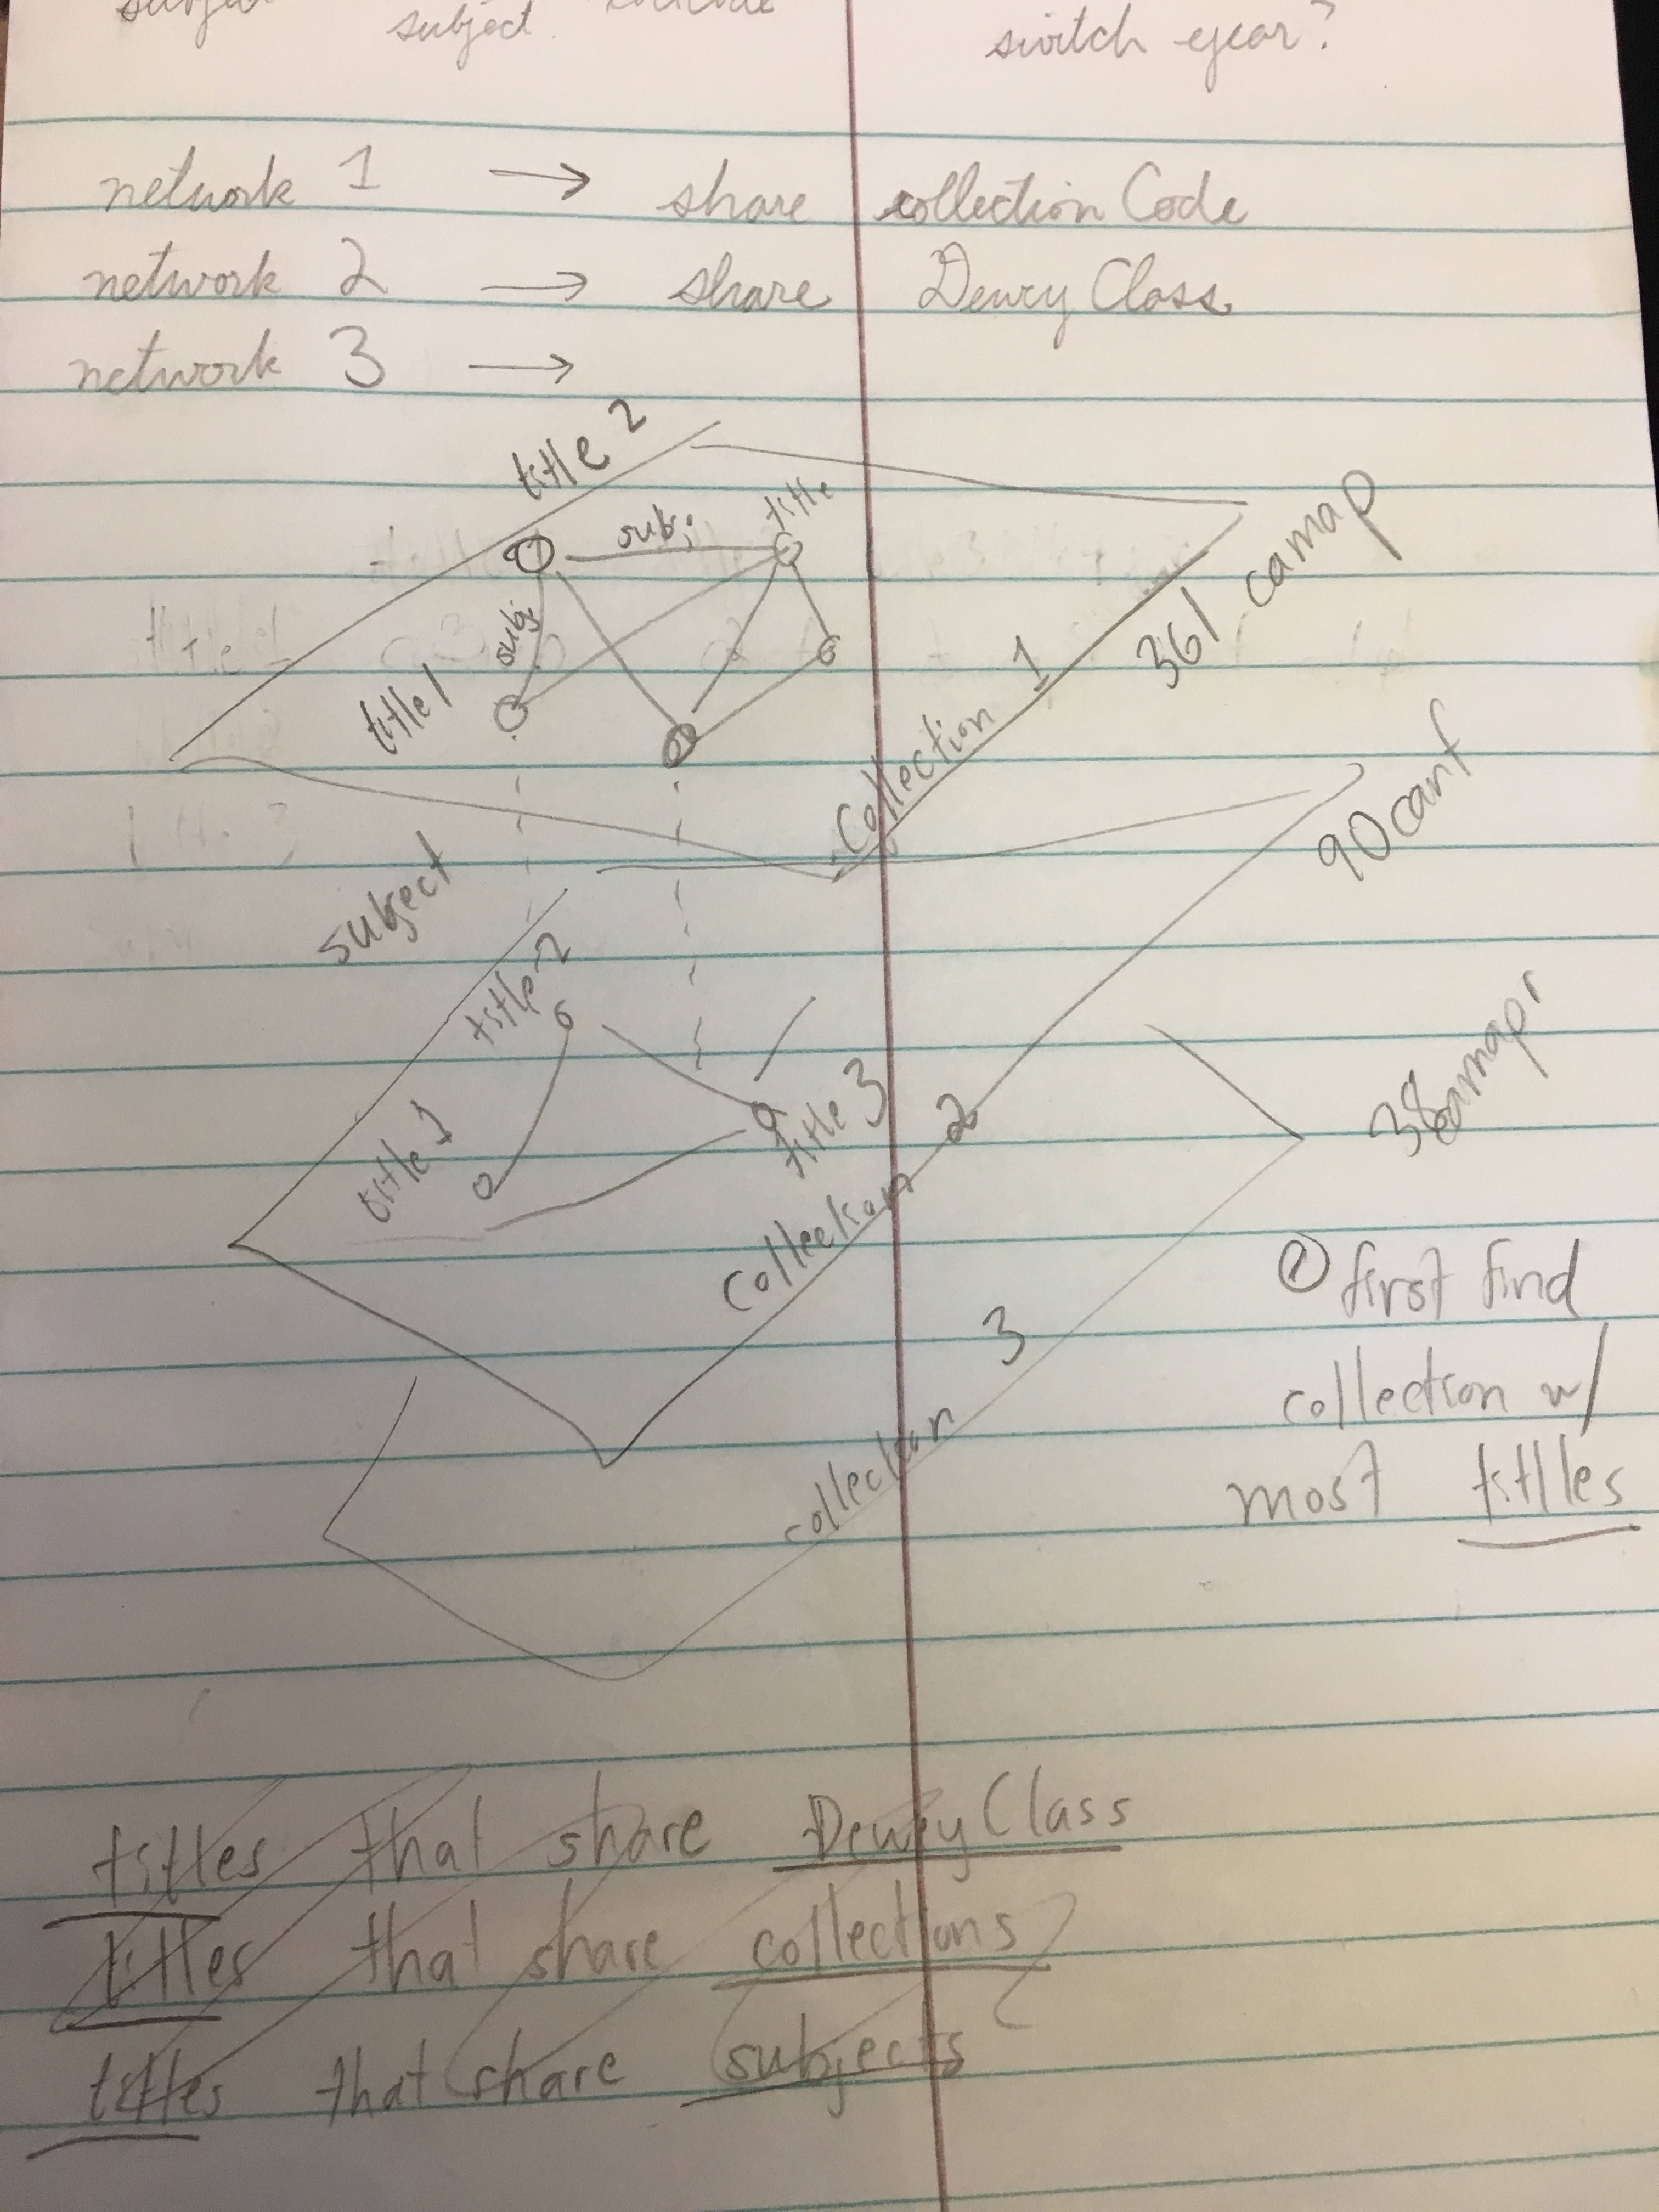 subject
subject
switch year?
network 1 → share collectionCode
network 2 → share DeweyClass
network 3 →
title 2
subj
title
subj
title 1
Collection 1
361 camap
90 canf
subject
title 2
title 1
title 3
Collection 2
38
collection 3
① first find
collection w/
most titlles
titles that share DeweyClass
titles that share collections
titles that share subjects